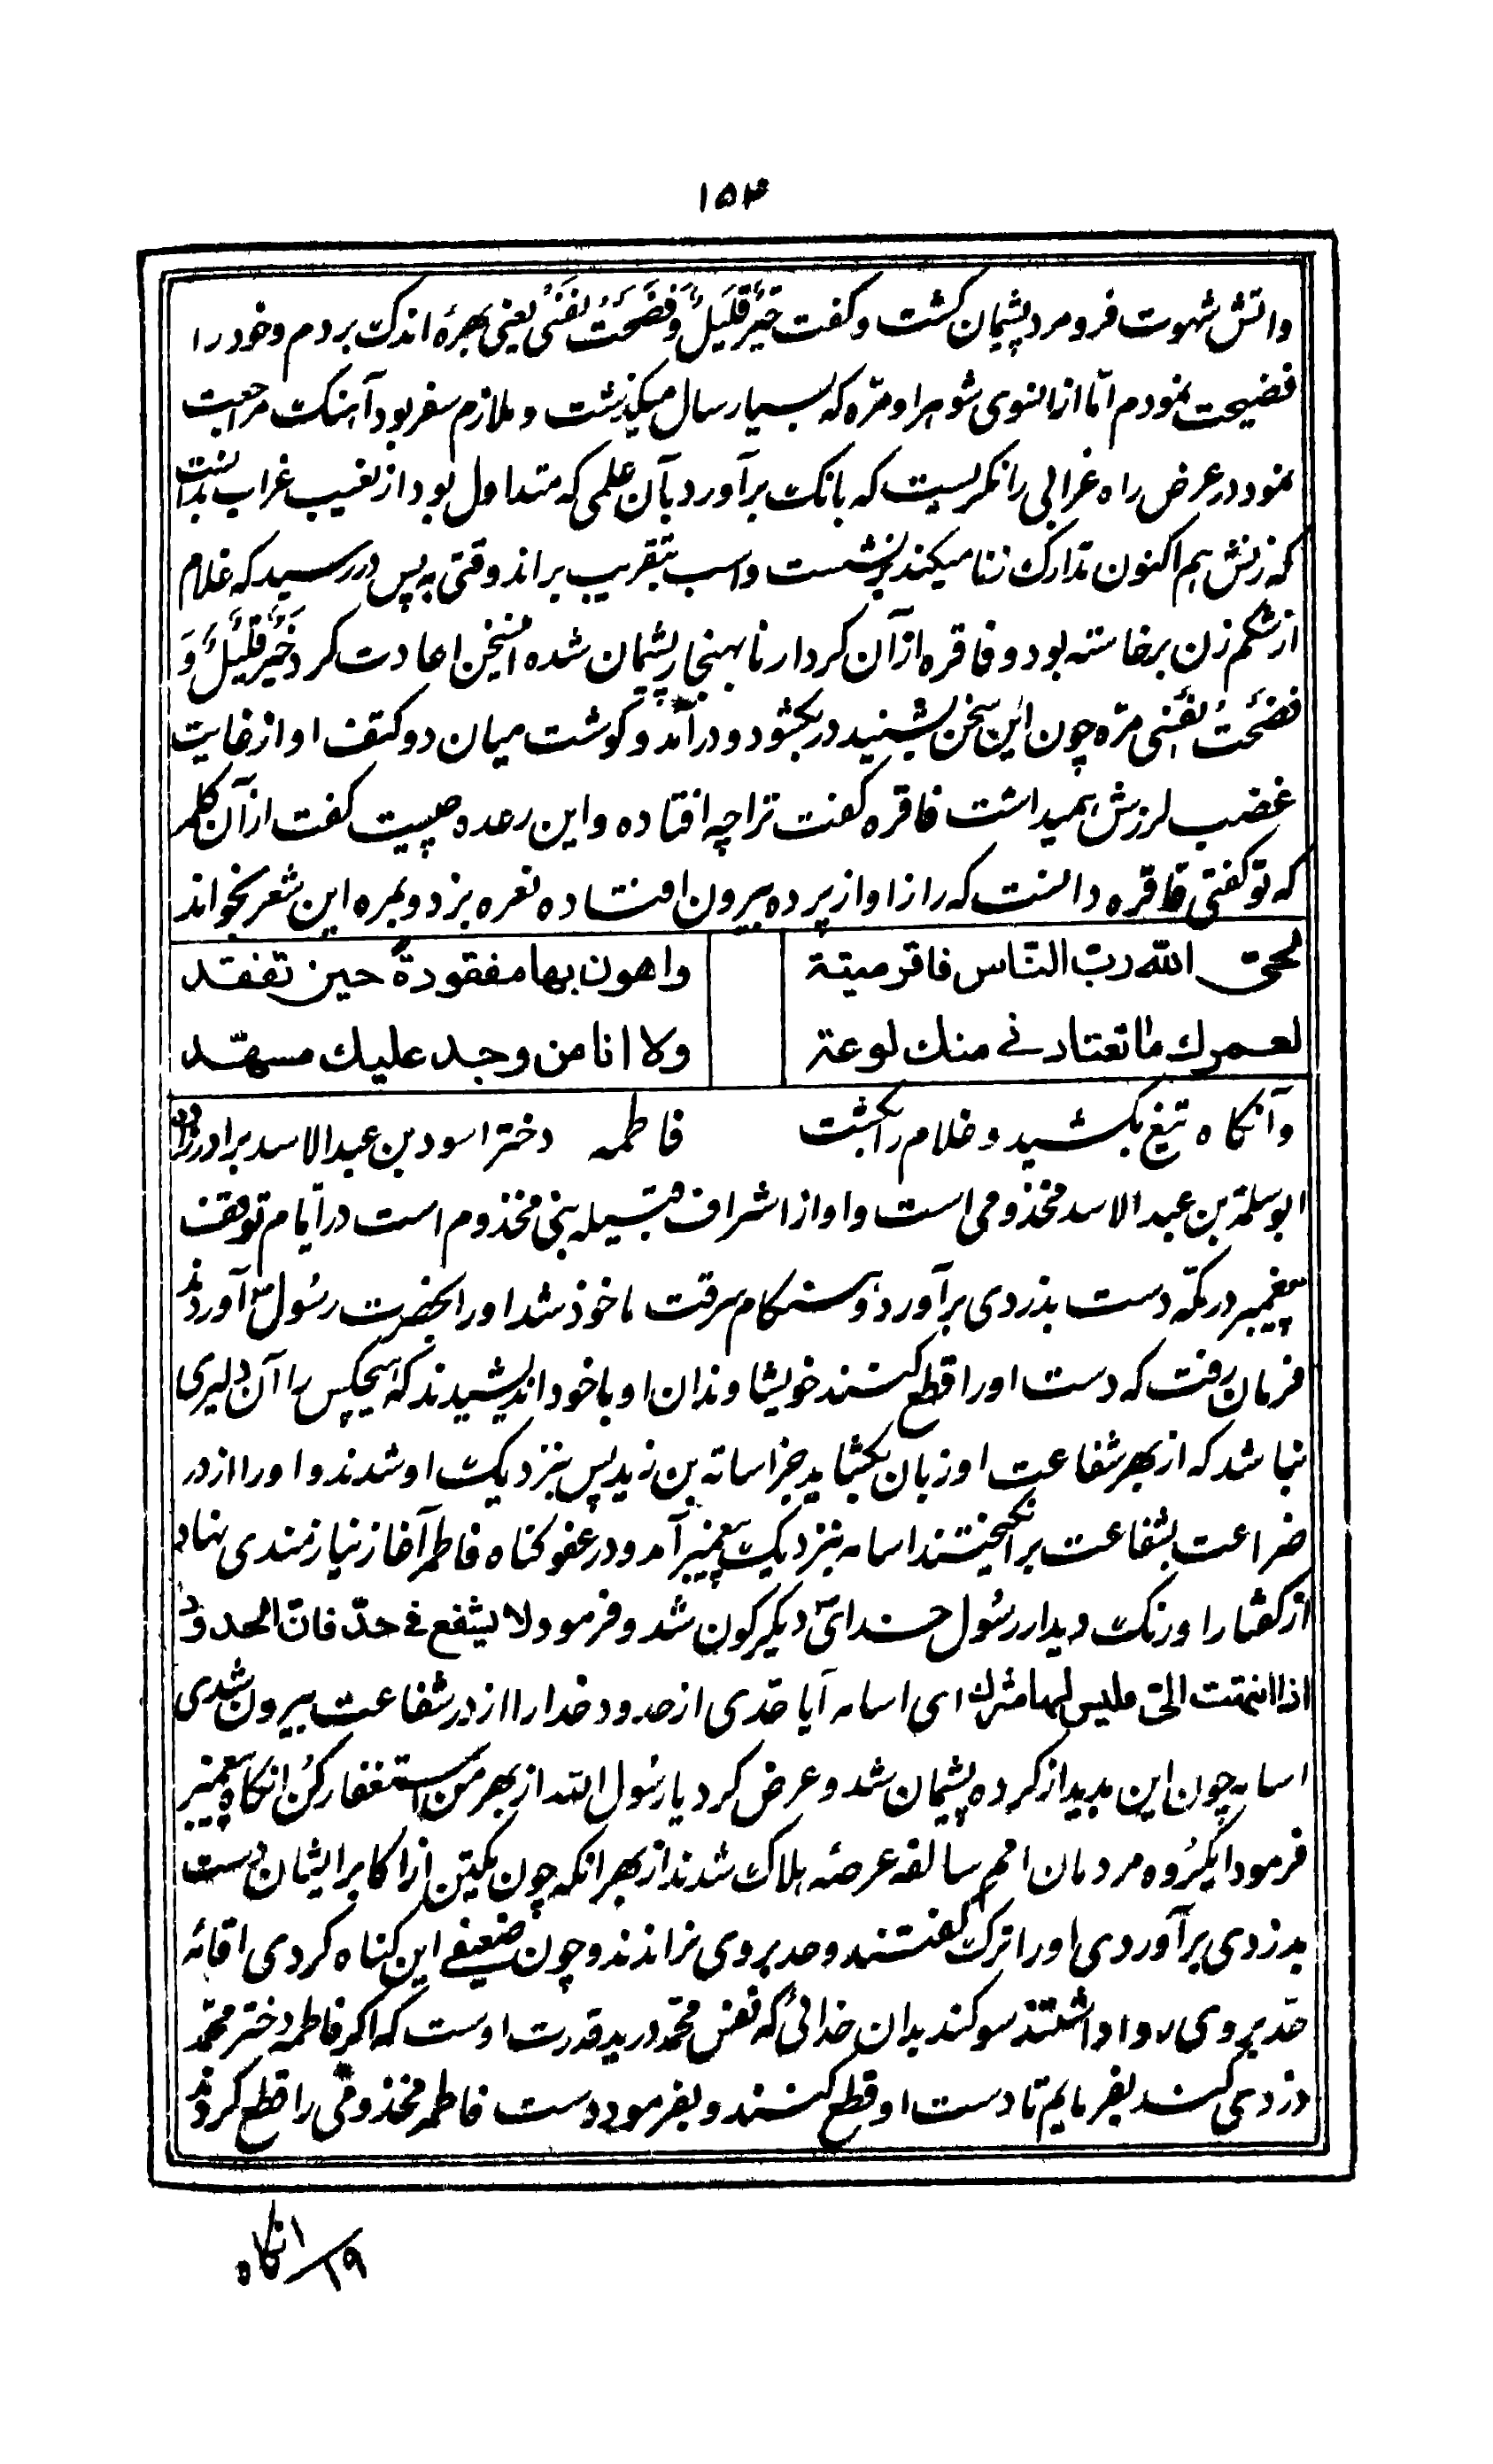 ۱۵۴
واتش شهوت فرو مرد پشیمان کشت و کفت خَیْرٌ قَلیلٌ وَ فَضَحْتُ نَفْسی یعنی بهرهٔ اندک بردم و خود را
فضیحت نمودم امّا از انسوی شوهر او مرّه که بسیار سال میکذشت و ملازم سفر بود آهنک مراجعت
نمود در عرض راه غرابی را نکریست که بانک برآورد بآن علمی که متداول بود از نغیب غراب بدانست
که زنش هم اکنون تدارک زنا میکند برنشست و اسب بتقریب براند وقتی به پس در رسید که غلام
از شکم زن برخاسته بود و فاقره از آن کردار نابهنجار پشیمان شده اینسخن اعادت کرد خَیْرٌ قَلیلٌ وَ
فَضَحْتُ نَفْسی مرّه چون این سخن بشنید در بکشود و درآمد و کوشت میان دو کتف او از غایت
غضب لرزش همیداشت فاقره کفت ترا چه افتاده و این رعده چیست کفت از آن کلمه
که تو کفتی فاقره دانست که راز او از پرده بیرون افتاده نعره بزد و بمرد مره این شعر بخواند
لحی الله ربّ النّاس فاقر میتة واهون بها مفقودةً حین تفقد
لعمرك ما تعتادنی منك لوعة ولا انا من وجد علیك مسهّد
وآنکاه تیغ بکشید و غلام را بکشت فاطمه دختر اسود بن عبدالاسد برادرزاده
ابوسلمة بن عبدالاسد مخذومی است و او از اشراف قبیله بنی مخذوم است در ایام توقف
پیغمبر در مکّه دست بدزدی برآورد و هنکام سرقت ماخوذ شد او را بحضرت رسول آوردند
فرمان رفت که دست او را قطع کنند خویشاوندان او با خود اندیشیدند که هیچکس را آن دلیری
نباشد که از بهر شفاعت او زبان بکشاید جز اسامه بن زید پس بنزدیک او شدند و او را از در
ضراعت بشفاعت برانکیختند اسامه بنزدیک پیغمبر آمد و در عفو کناه فاطمه آغاز نیازمندی نهاد
از کفتار او رنک دیدار رسول خدای دیکرکون شد و فرمود لا یشفع فی حدّ فانّ الحدود
اذا انتهت الیّ فلیس لها مترك ای اسامه آیا حدی از حدود خدا را از در شفاعت بیرون شدی
اسامه چون این بدید از کرده پشیمان شد و عرض کرد یا رسول الله از بهر من استغفار کن انکاه پیغمبر
فرمود ایکروه مردمان امم سالفه عرضه هلاک شدند از بهر انکه چون یکتن از اکابر ایشان دست
بدزدی برآوردی او را ترک کفتند و حد بروی نراندند و چون ضعیفی این کناه کردی اقامهٔ
حد بروی روا داشتند سوکند بدان خدائی که نفس محمّد در ید قدرت اوست که اکر فاطمه دختر محمّد
دزدی کند بفرمایم تا دست او قطع کنند و بفرمود دست فاطمه مخذومی را قطع کردند
انکاه
۱۹